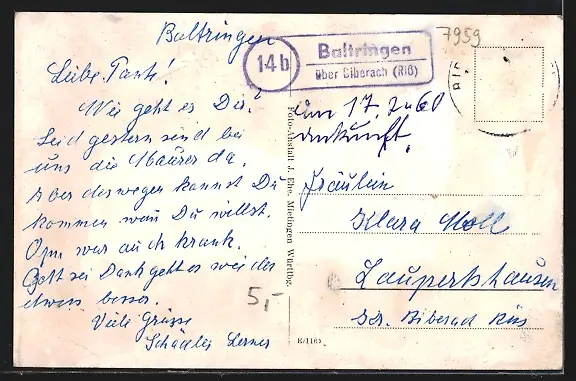 Baltringen
Liebe Tante!
Wie geht es Dir?
Seid gestern sind bei
uns die Maurer da.
Aber deswegen kannst Du
kommen wan Du willst.
Opa war auch krank.
Gott sei Dank geht es wieder
etwas besser.
Viele Grüsse
5,-
14b
Baltringen
über Biberach (Riß)
7959
am 17. 2 60
Ankunft.
Fräulein
Klara Moll
Laupertshausen
Biberach Riß
Foto-Anstalt J. Ehe, Mietingen Württbg.